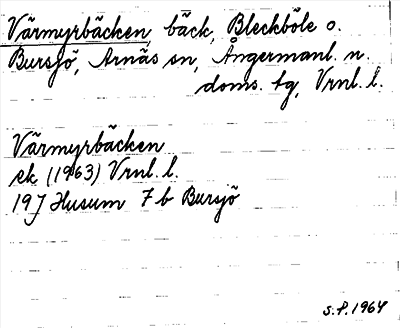 Värmyrbäcken bäck, Bleckböle o.
Bursjö, Arnäs sn, Ångermanl. n.
doms. tg, Vrnl. l.
Värmyrbäcken
ek (1963) Vrnl. l.
19J Husum 7 b Bursjö
S.P. 1964